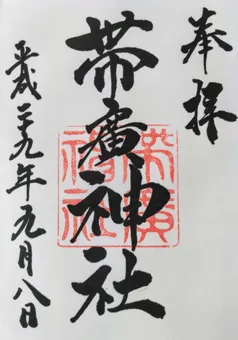 奉拝
帯廣神社
平成二十九年九月八日
帯廣神社